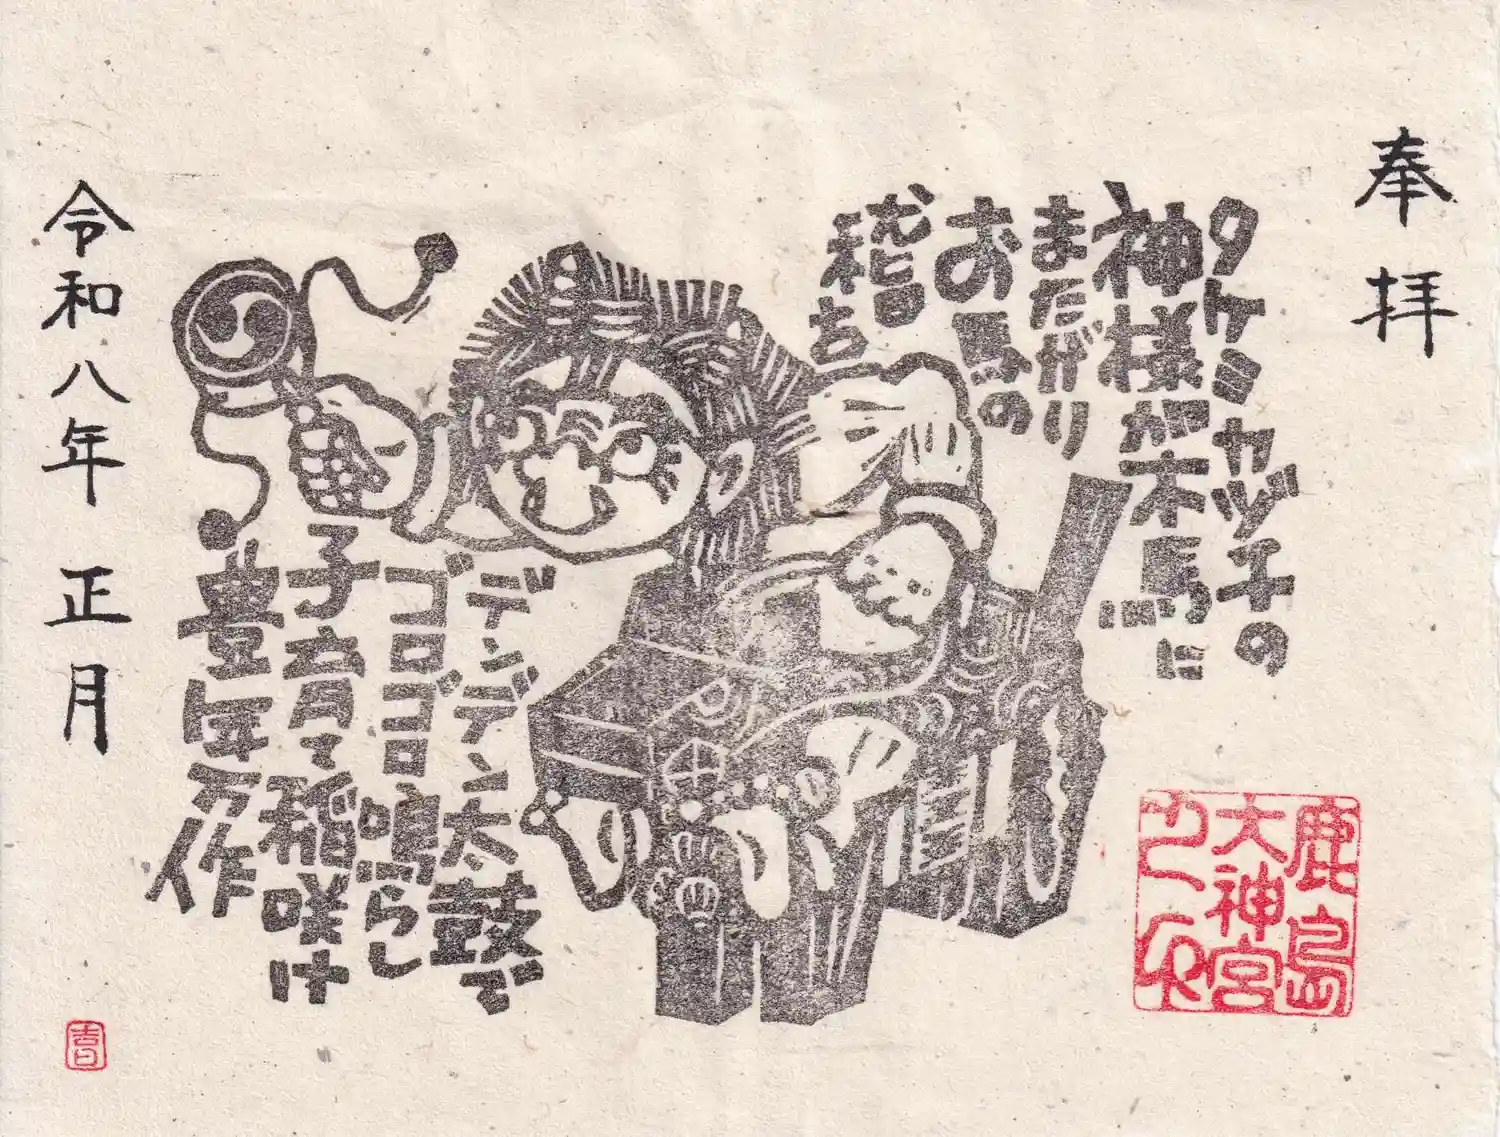 奉拝
タケミカヅチの
神様が木馬に
またがり
お馬の
稽古
デンデンデン太鼓で
ゴロゴロ鳴らし
子育て稲咲け
豊年万作
令和八年 正月
鹿島
大神宮